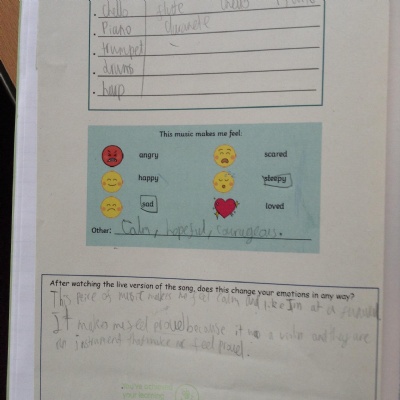 chello flute
Piano clarinete
trumpet
drums
harp
This music makes me feel:
angry scared
happy sleepy
sad loved
Other: Calm, hopeful, courageous.
After watching the live version of the song, does this change your emotions in any way?
This piece of music makes me feel calm and like Im at a funeral
It makes me feel proud because it a violin and they are
instrument that make me feel proud.